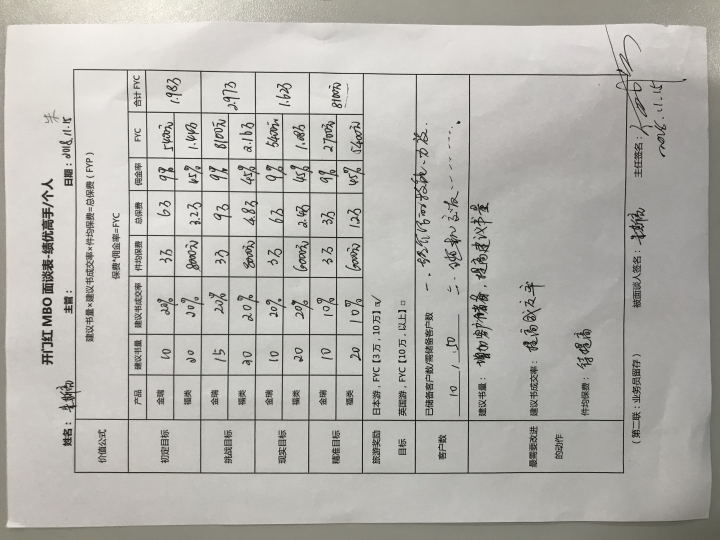 开门红 MBO 面谈表-绩优高手/个人
姓名： 主管： 日期：2018.11.15
价值公式 建议书量×建议书成交率×件均保费=总保费（FYP）
保费*佣金率=FYC
产品 建议书量 建议书成交率 件均保费 总保费 佣金率 FYC 合计 FYC
初定目标 金瑞 10 20% 3万 6万 9% 5400元 1.98万
福类 20 20% 8000元 3.2万 45% 1.44万
挑战目标 金瑞 15 20% 3万 9万 9% 8100元 2.97万
福类 30 20% 8000元 4.8万 45% 2.16万
现实目标 金瑞 10 20% 3万 6万 9% 5400元 1.62万
福类 20 20% 6000元 2.4万 45% 1.08万
精准目标 金瑞 10 10% 3万 3万 9% 2700元 8100元
福类 20 10% 6000元 12万 45% 5400元
旅游奖励 日本游，FYC【3万，10万】☑
目标 英国游，FYC【10万，以上】□
客户数 已储备客户数/需储备客户数
10 / 50
最需要改进的动作 建议书量：增加客户储备，提高建议书量
建议书成交率：提高成交率
件均保费：待提高
（第二联：业务员留存） 被面谈人签名： 主任签名：
2018.11.15